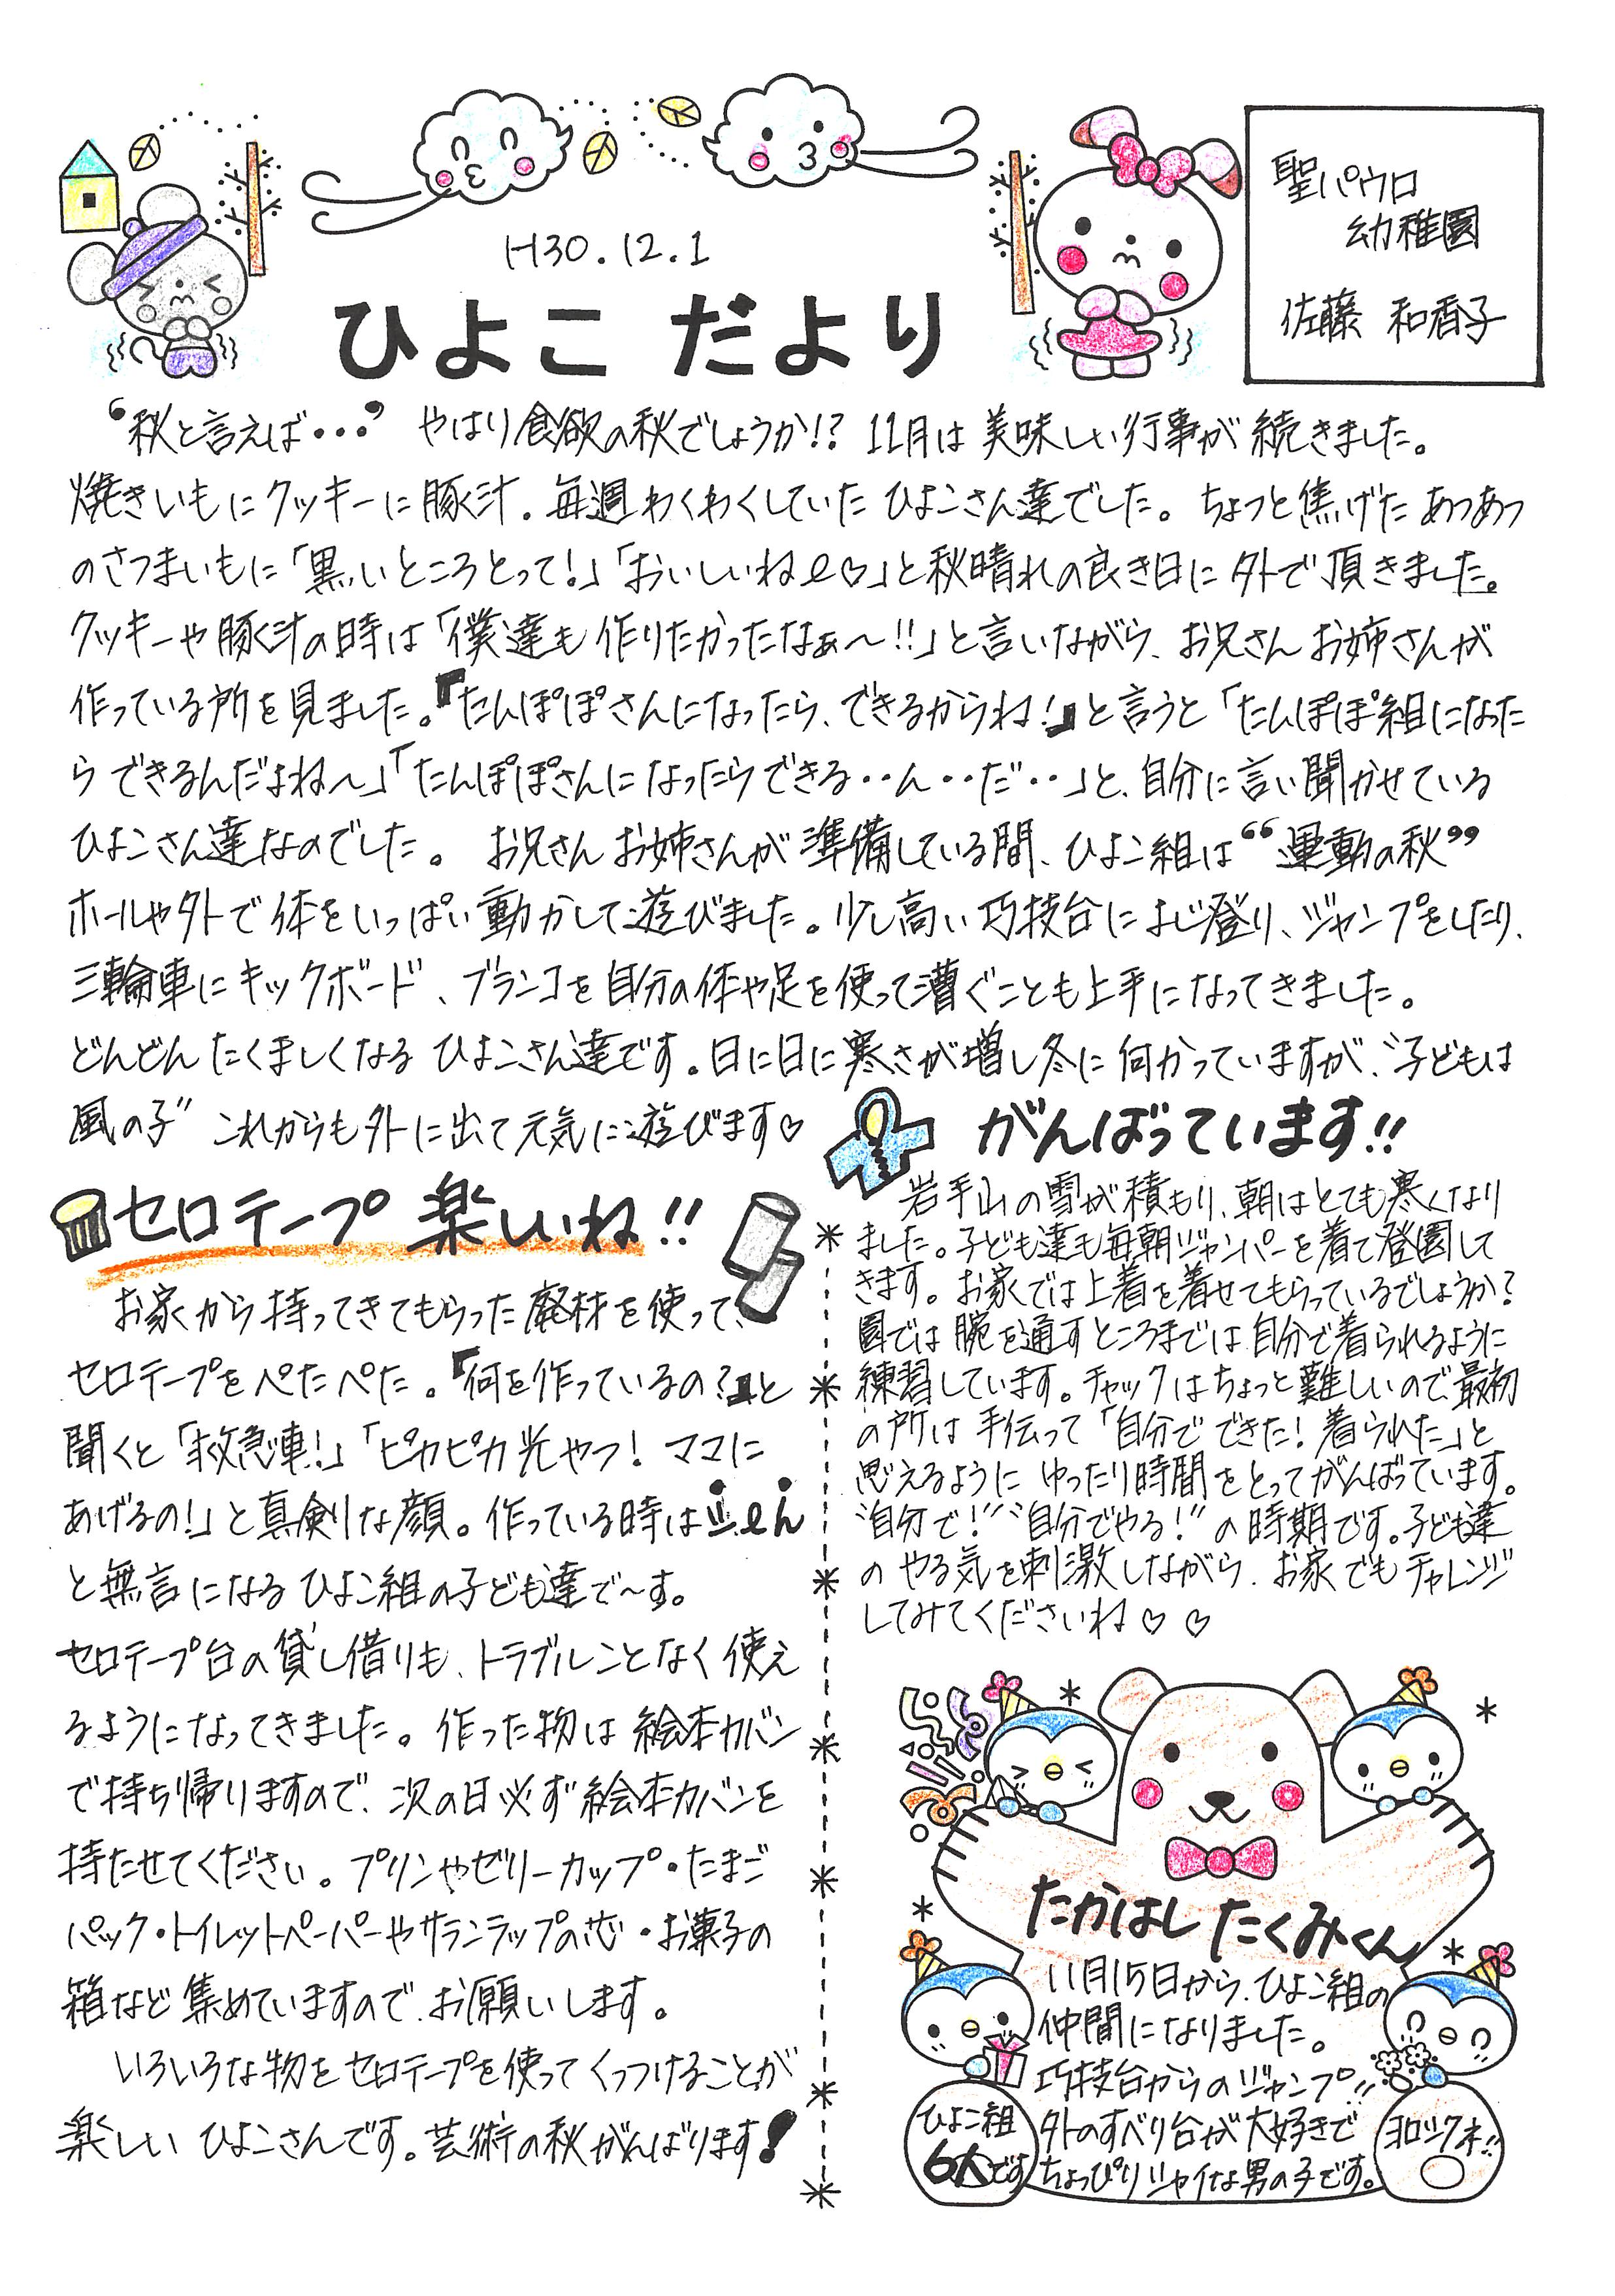 聖パウロ
幼稚園
佐藤 和香子
H30.12.1
ひよこ だより
“秋と言えば・・・” やはり食欲の秋でしょうか!? 11月は美味しい行事が続きました。
焼きいもにクッキーに豚汁。毎週わくわくしていたひよこさん達でした。ちょっと焦げたあつあつ
のさつまいもに「黒いところとって!」「おいしいね〜♡」と秋晴れの良き日に外で頂きました。
クッキーや豚汁の時は「僕達も作りたかったなぁ〜!!」と言いながら、お兄さんお姉さんが
作っている所を見ました。『たんぽぽさんになったら、できるからね!』と言うと「たんぽぽ組になった
らできるんだよね〜」「たんぽぽさんになったらできる・・ん・・だ・・」と、自分に言い聞かせている
ひよこさん達なのでした。 お兄さんお姉さんが準備している間、ひよこ組は“運動の秋”
ホールや外で体をいっぱい動かして遊びました。少し高い巧技台によじ登り、ジャンプをしたり、
三輪車にキックボード、ブランコを自分の体や足を使って漕ぐことも上手になってきました。
どんどんたくましくなるひよこさん達です。日に日に寒さが増し冬に向かっていますが、“子どもは
風の子” これからも外に出て元気に遊びます♡
セロテープ 楽しいね!!
お家から持ってきてもらった廃材を使って、
セロテープをぺたぺた。『何を作っているの?』と
聞くと「救急車!」「ピカピカ光やつ! ママに
あげるの!」と真剣な顔。作っている時はし〜ん
と無言になるひよこ組の子ども達で〜す。
セロテープ台の貸し借りも、トラブルことなく使え
るようになってきました。作った物は絵本カバン
で持ち帰りますので、次の日必ず絵本カバンを
持たせてください。プリンやゼリーカップ・たまご
パック・トイレットペーパーやサランラップの芯・お菓子の
箱など集めていますので、お願いします。
いろいろな物をセロテープを使ってくっつけることが
楽しいひよこさんです。芸術の秋がんばります!
がんばっています!!
岩手山の雪が積もり、朝はとても寒くなり
ました。子ども達も毎朝ジャンパーを着て登園して
きます。お家では上着を着せてもらっているでしょうか?
園では腕を通すところまでは自分で着られるように
練習しています。チャックはちょっと難しいので最初
の所は手伝って「自分でできた! 着られた」と
思えるようにゆったり時間をとってがんばっています。
“自分で!”“自分でやる!”の時期です。子ども達
のやる気を刺激しながら、お家でもチャレンジ
してみてくださいね♡ ♡
たかはし たくみくん
11月15日から、ひよこ組の
仲間になりました。
巧技台からのジャンプ!!
外のすべり台が大好きで
ちょっぴりシャイな男の子です。
ひよこ組
6人です
ヨロシクネ!!